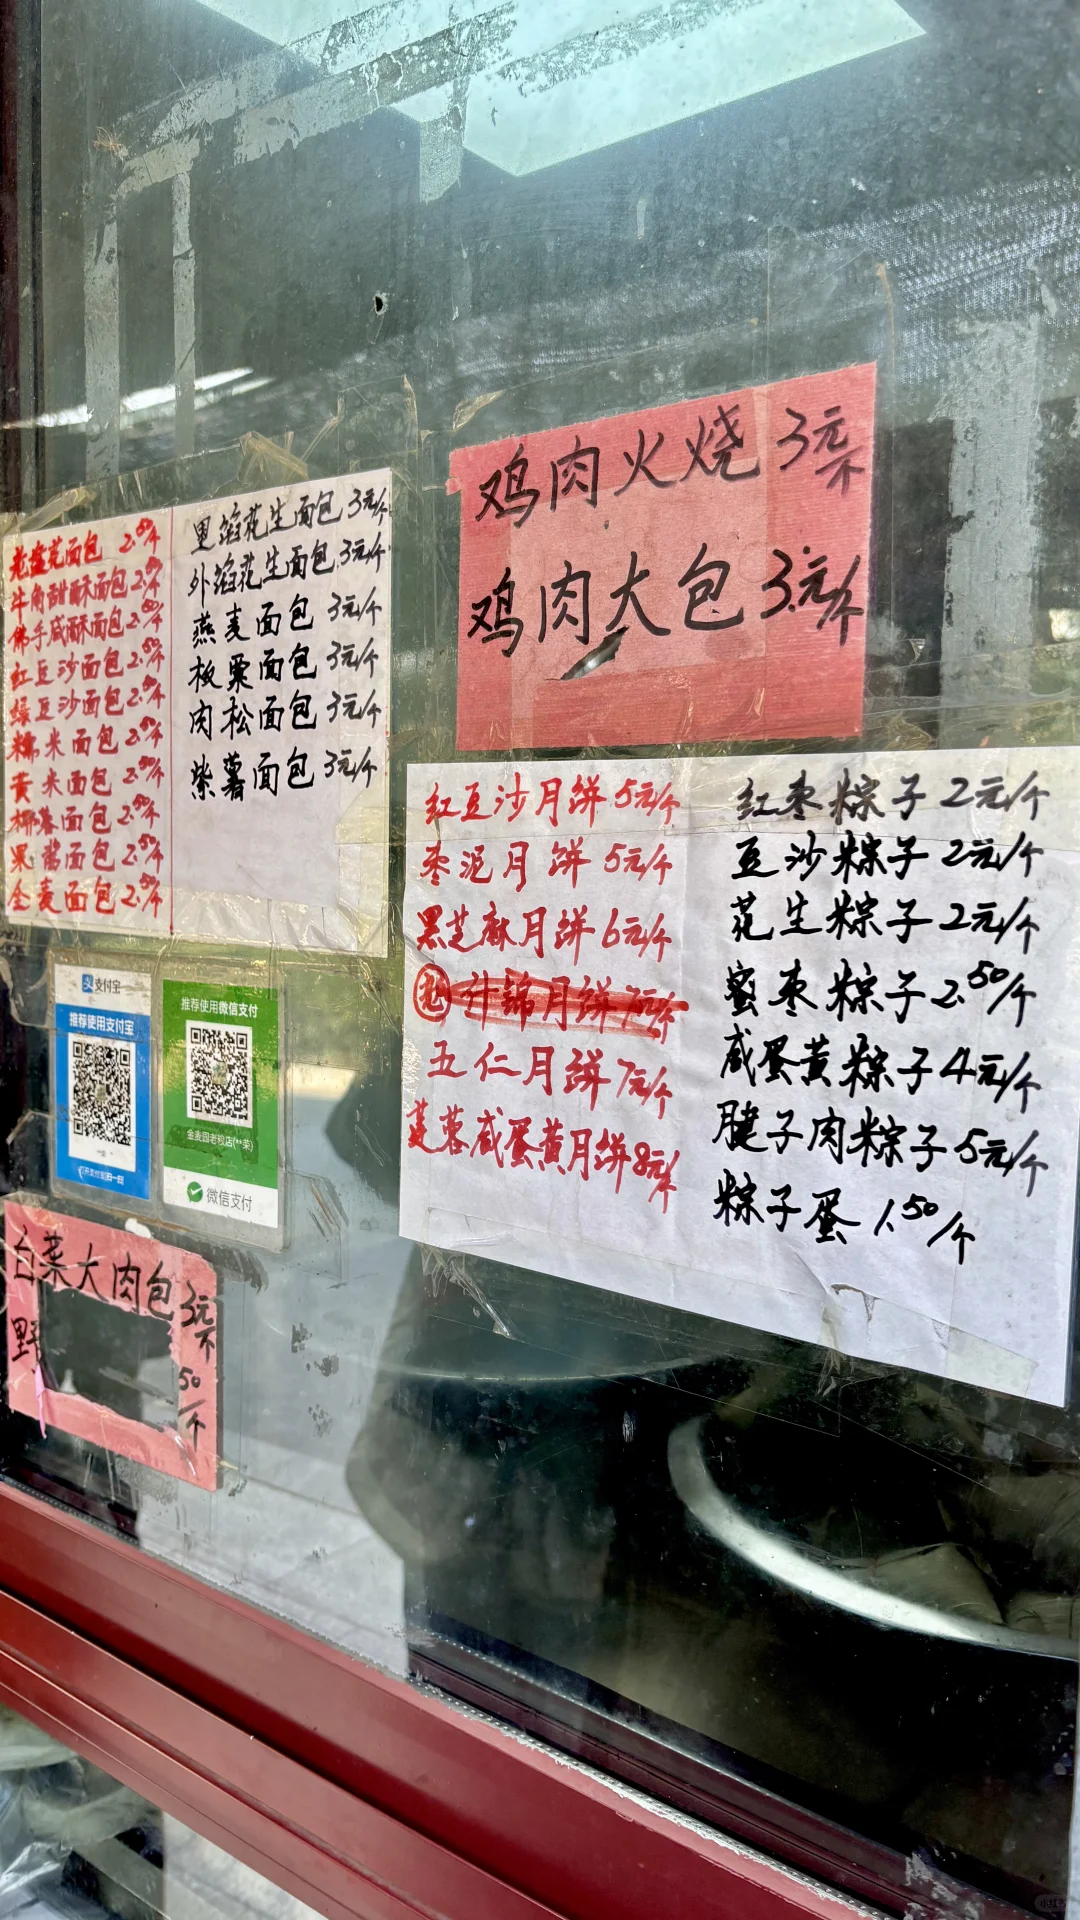 鸡肉火烧 3元/个
鸡肉大包 3元/个
花面包 2.50/个
牛角甜酥面包 2.50/个
佛手咸酥面包 2.50/个
红豆沙面包 2.50/个
绿豆沙面包 2.50/个
糯米面包 2.50/个
黄米面包 2.50/个
面包 2.50/个
果酱面包 2.50/个
全麦面包 2.50/个
里馅花生面包 3元/个
外馅花生面包 3元/个
燕麦面包 3元/个
板栗面包 3元/个
肉松面包 3元/个
紫薯面包 3元/个
红豆沙月饼 5元/个
枣泥月饼 5元/个
黑芝麻月饼 6元/个
什锦月饼 7元/个
五仁月饼 7元/个
莲蓉咸蛋黄月饼 8元/个
红枣粽子 2元/个
豆沙粽子 2元/个
花生粽子 2元/个
蜜枣粽子 2.50/个
咸蛋黄粽子 4元/个
腱子肉粽子 5元/个
粽子蛋 1.50/个
支付宝
推荐使用支付宝
推荐使用微信支付
金麦园老税店(**荣)
微信支付
白菜大肉包 3元/个
野
50/个